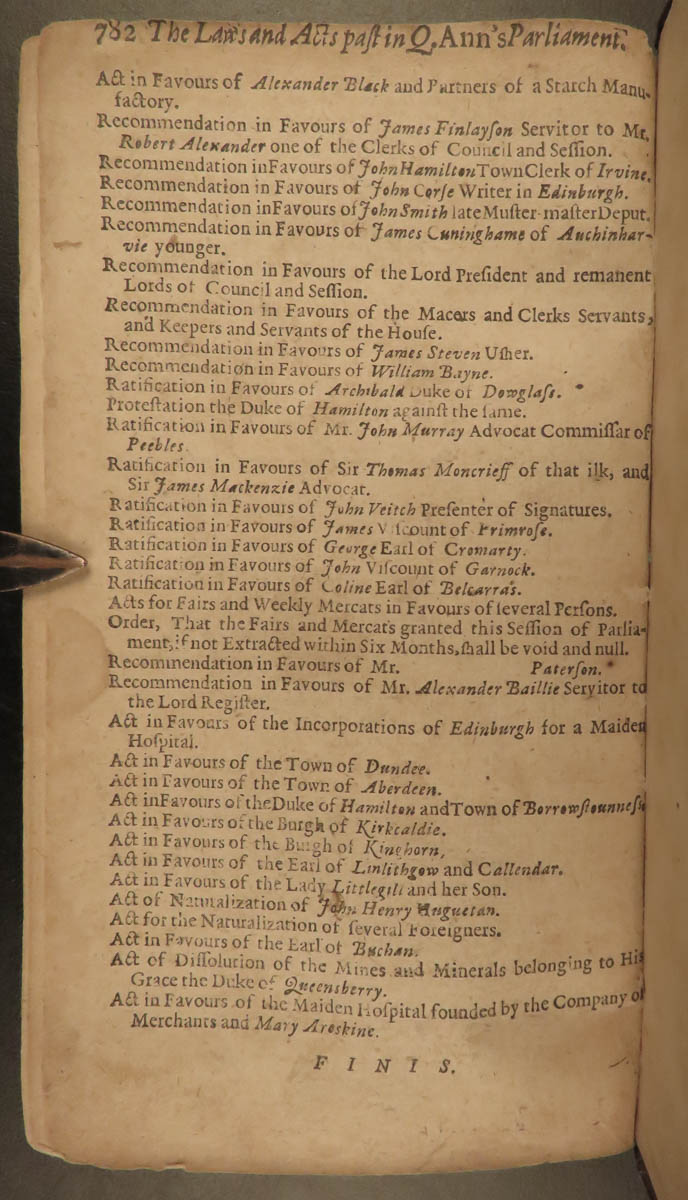 782 The Laws and Acts past in Q. Ann's Parliament.
Act in Favours of Alexander Black and Partners of a Starch Manu-
factory.
Recommendation in Favours of James Finlayſon Servitor to Mr.
Robert Alexander one of the Clerks of Council and Seſſion.
Recommendation in Favours of John Hamilton Town Clerk of Irvine.
Recommendation in Favours of John Corſe Writer in Edinburgh.
Recommendation in Favours of John Smith late Muſter-maſter Deput.
Recommendation in Favours of James Cuninghame of Auchinhar-
vie younger.
Recommendation in Favours of the Lord Preſident and remanent
Lords of Council and Seſſion.
Recommendation in Favours of the Macers and Clerks Servants,
and Keepers and Servants of the Houſe.
Recommendation in Favours of James Steven Uſher.
Recommendation in Favours of William Bayne.
Ratification in Favours of Archibald Duke of Dowglaſs.
Proteſtation the Duke of Hamilton againſt the ſame.
Ratification in Favours of Mr. John Murray Advocat Commiſſar of
Peebles.
Ratification in Favours of Sir Thomas Moncrieff of that ilk, and
Sir James Mackenzie Advocat.
Ratification in Favours of John Veitch Preſenter of Signatures.
Ratification in Favours of James Viſcount of Primroſe.
Ratification in Favours of George Earl of Cromarty.
Ratification in Favours of John Viſcount of Garnock.
Ratification in Favours of Coline Earl of Belcarras.
Acts for Fairs and Weekly Mercats in Favours of ſeveral Perſons.
Order, That the Fairs and Mercats granted this Seſſion of Parlia-
ment, if not Extracted within Six Months, ſhall be void and null.
Recommendation in Favours of Mr. Paterſon.
Recommendation in Favours of Mr. Alexander Baillie Servitor to
the Lord Regiſter.
Act in Favours of the Incorporations of Edinburgh for a Maiden
Hoſpital.
Act in Favours of the Town of Dundee.
Act in Favours of the Town of Aberdeen.
Act in Favours of the Duke of Hamilton and Town of Borrowſtounneſs
Act in Favours of the Burgh of Kirkcaldie.
Act in Favours of the Burgh of Kinghorn,
Act in Favours of the Earl of Linlithgow and Callendar.
Act in Favours of the Lady Littlegill and her Son.
Act of Naturalization of John Henry Huguetan.
Act for the Naturalization of ſeveral Foreigners.
Act in Favours of the Earl of Buchan.
Act of Diſſolution of the Mines and Minerals belonging to His
Grace the Duke of Queensberry.
Act in Favours of the Maiden Hoſpital founded by the Company of
Merchants and Mary Areskine.
F I N I S.